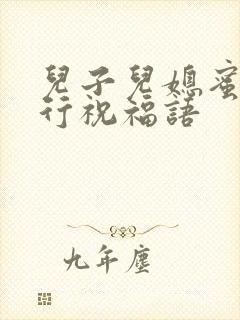 兒子兒媳蜜
行祝福語
九年塵